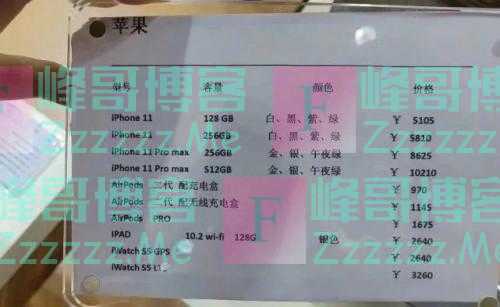 苹果
型号 容量 颜色 价格
iPhone 11 128 GB 白、黑、紫、绿 ¥ 5105
iPhone 11 256GB 白、黑、紫、绿 ¥ 5810
iPhone 11 Pro max 256GB 金、银、午夜绿 ¥ 8625
iPhone 11 Pro max 512GB 金、银、午夜绿 ¥ 10210
AirPods 二代 配充电盒 ¥ 970
AirPods 二代 配无线充电盒 ¥ 1145
AirPods PRO ¥ 1675
IPAD 10.2 wi-fi 128G 银色 ¥ 2640
iWatch S5 GPS ¥ 2640
iWatch S5 ¥ 3260
峰哥博客 F 峰哥博客
Zzzzzz.Me Zzzzzz.Me
峰哥博客 F 峰哥博客
Zzzzzz.Me Zzzzzz.Me